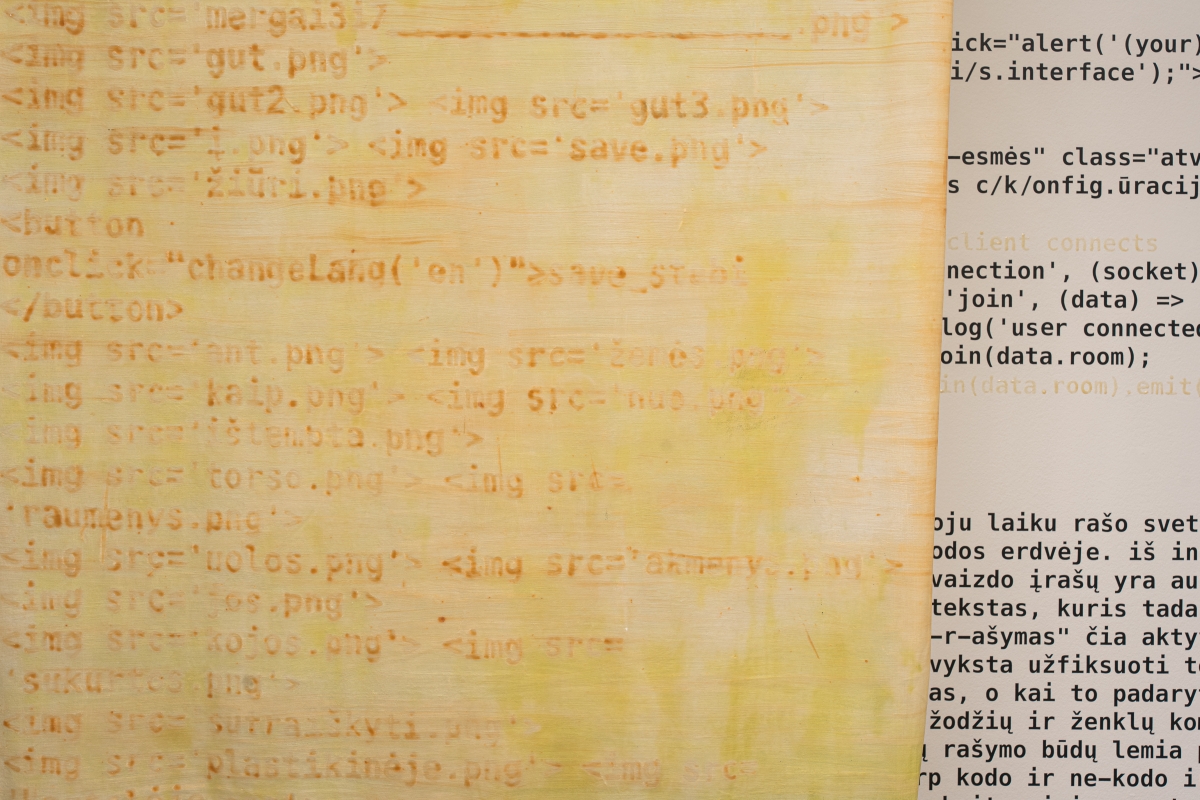 <img src='mergai317_____________________.png >
<img src='gut.png'>
<img src='gut2.png'> <img src='gut3.png'>
<img src='į.png'> <img src='save.png'>
<img src='žiūri.png'>
<button
onclick="changeLang('en')">save_stebi
</button>
<img src='ant.png'> <img src='žemės.png'>
<img src='kaip.png'> <img src='nuo.png'>
img src='ištempta.png'>
<img src='torso.png'> <img src=
'raumenys.png'>
<img src='uolos.png'> <img src='akmenys.png'>
<img src='jos.png'>
<img src='kojos.png'> <img src=
'sukurtos.png'>
<img src='surraiškyti.png'>
<img src='plastikinėje.png'> <img src=
ick="alert('(your)
i/s.interface');">
-esmės" class="atv
s c/k/onfig.ūracij
client connects
nection', (socket)
'join', (data) =>
log('user connected
oin(data.room);
in(data.room),emit(
oju laiku rašo svet
odos erdvėje. iš in
vaizdo įrašų yra au
tekstas, kuris tada
-r-ašymas" čia akty
vyksta užfiksuoti t
as, o kai to padary
žodžių ir ženklų ko
ų rašymo būdų lemia p
rp kodo ir ne-kodo i